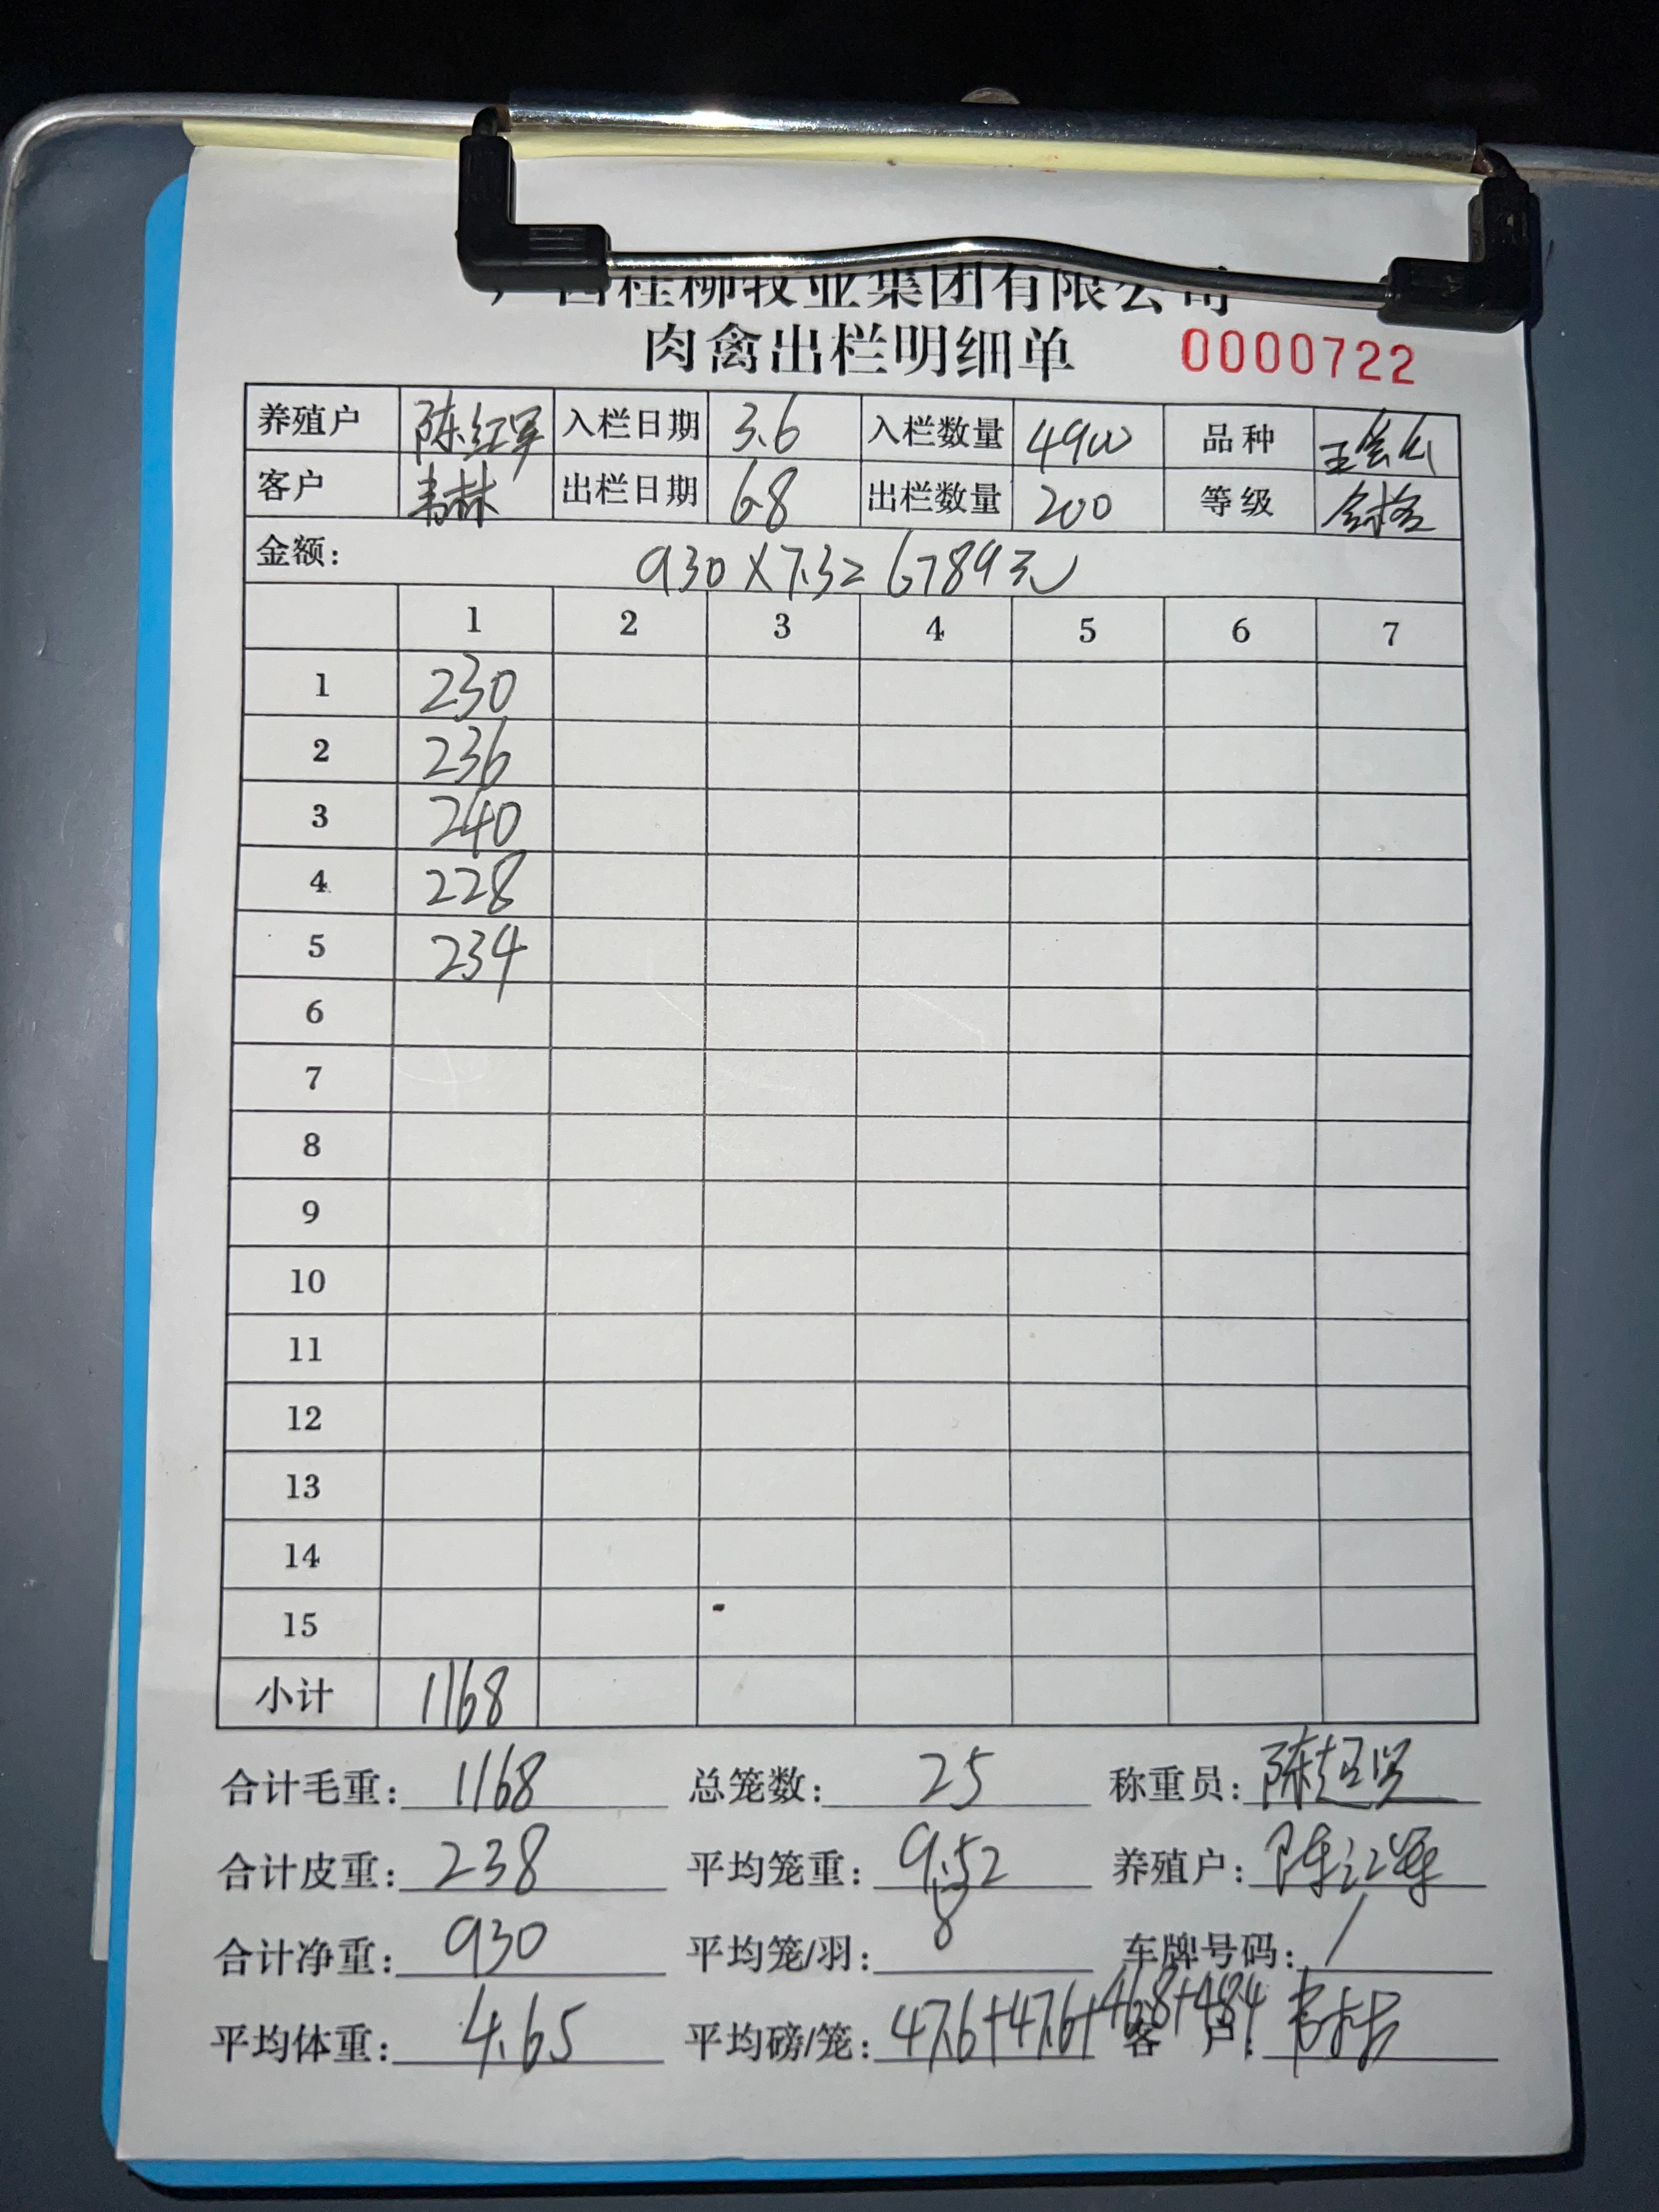 广西桂柳牧业集团有限公司
肉禽出栏明细单 0000722
养殖户 陈红军 入栏日期 3.6 入栏数量 4900 品种
客户 韦林 出栏日期 6.8 出栏数量 200 等级 合格
金额: 930×7.3=6789元
1 2 3 4 5 6 7
1 230
2 236
3 240
4 228
5 234
6
7
8
9
10
11
12
13
14
15
小计 1168
合计毛重: 1168 总笼数: 25 称重员:
合计皮重: 238 平均笼重: 9.52 养殖户:
合计净重: 930 平均笼/羽: 8 车牌号码: /
平均体重: 4.65 平均磅/笼: 47.6+47.6+46.8+48.4 客 户: